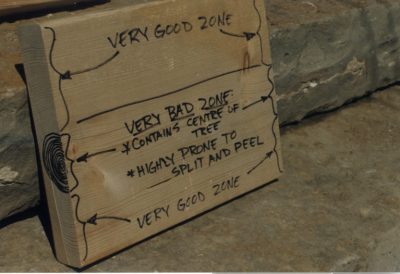 VERY GOOD ZONE
VERY BAD ZONE:
*CONTAINS CENTRE OF
TREE
*HIGHLY PRONE TO
SPLIT AND PEEL
VERY GOOD ZONE